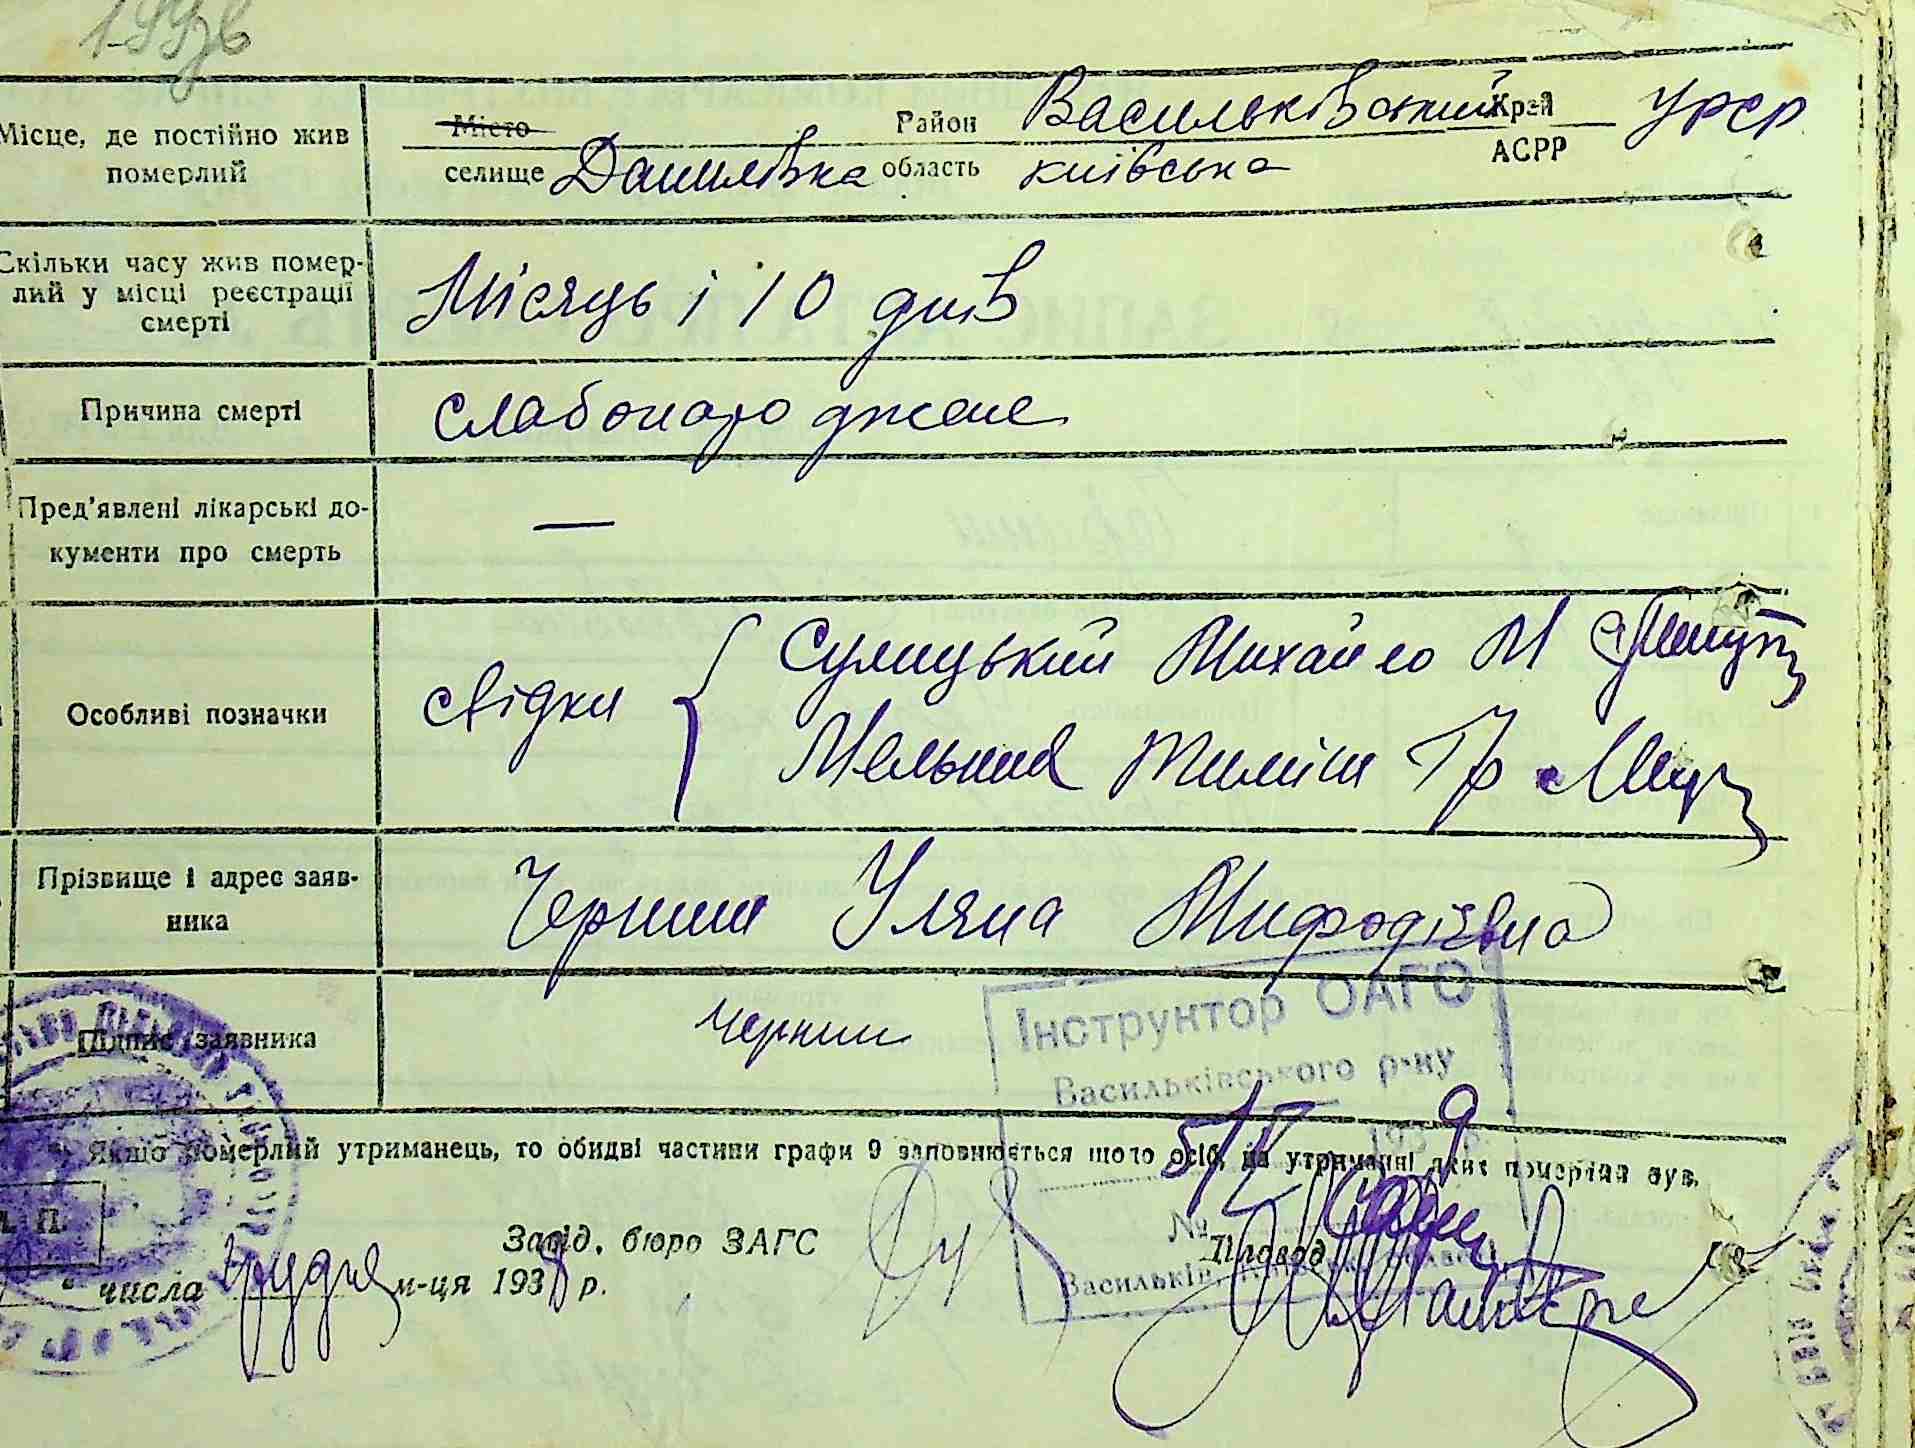 Місце, де постійно жив
померлий
Місто
Район Васильківський Край УРСР
АСРР
селище Данилівка область київська
Скільки часу жив помер-
лий у місці реєстрації
смерті
Місяць і 10 днів
Причина смерті
слабонароджене
Пред'явлені лікарські до-
кументи про смерть
—
Особливі позначки
свідки { Сулицький Михайло М
Мельник Тиміш Гр
Прізвище і адрес заяв-
ника
Черниш Уляна Мифодіївна
Підпис заявника
Черниш
Інструктор ОАГС
Васильківського р-ну
5/IV 1939
Якщо померлий утриманець, то обидві частини графи 9 заповнюється щодо осіб, на утриманні яких померлий був.
М. П.
Завід. бюро ЗАГС
№
Діловод
Васильків,
" числа грудня м-ця 1938 р.